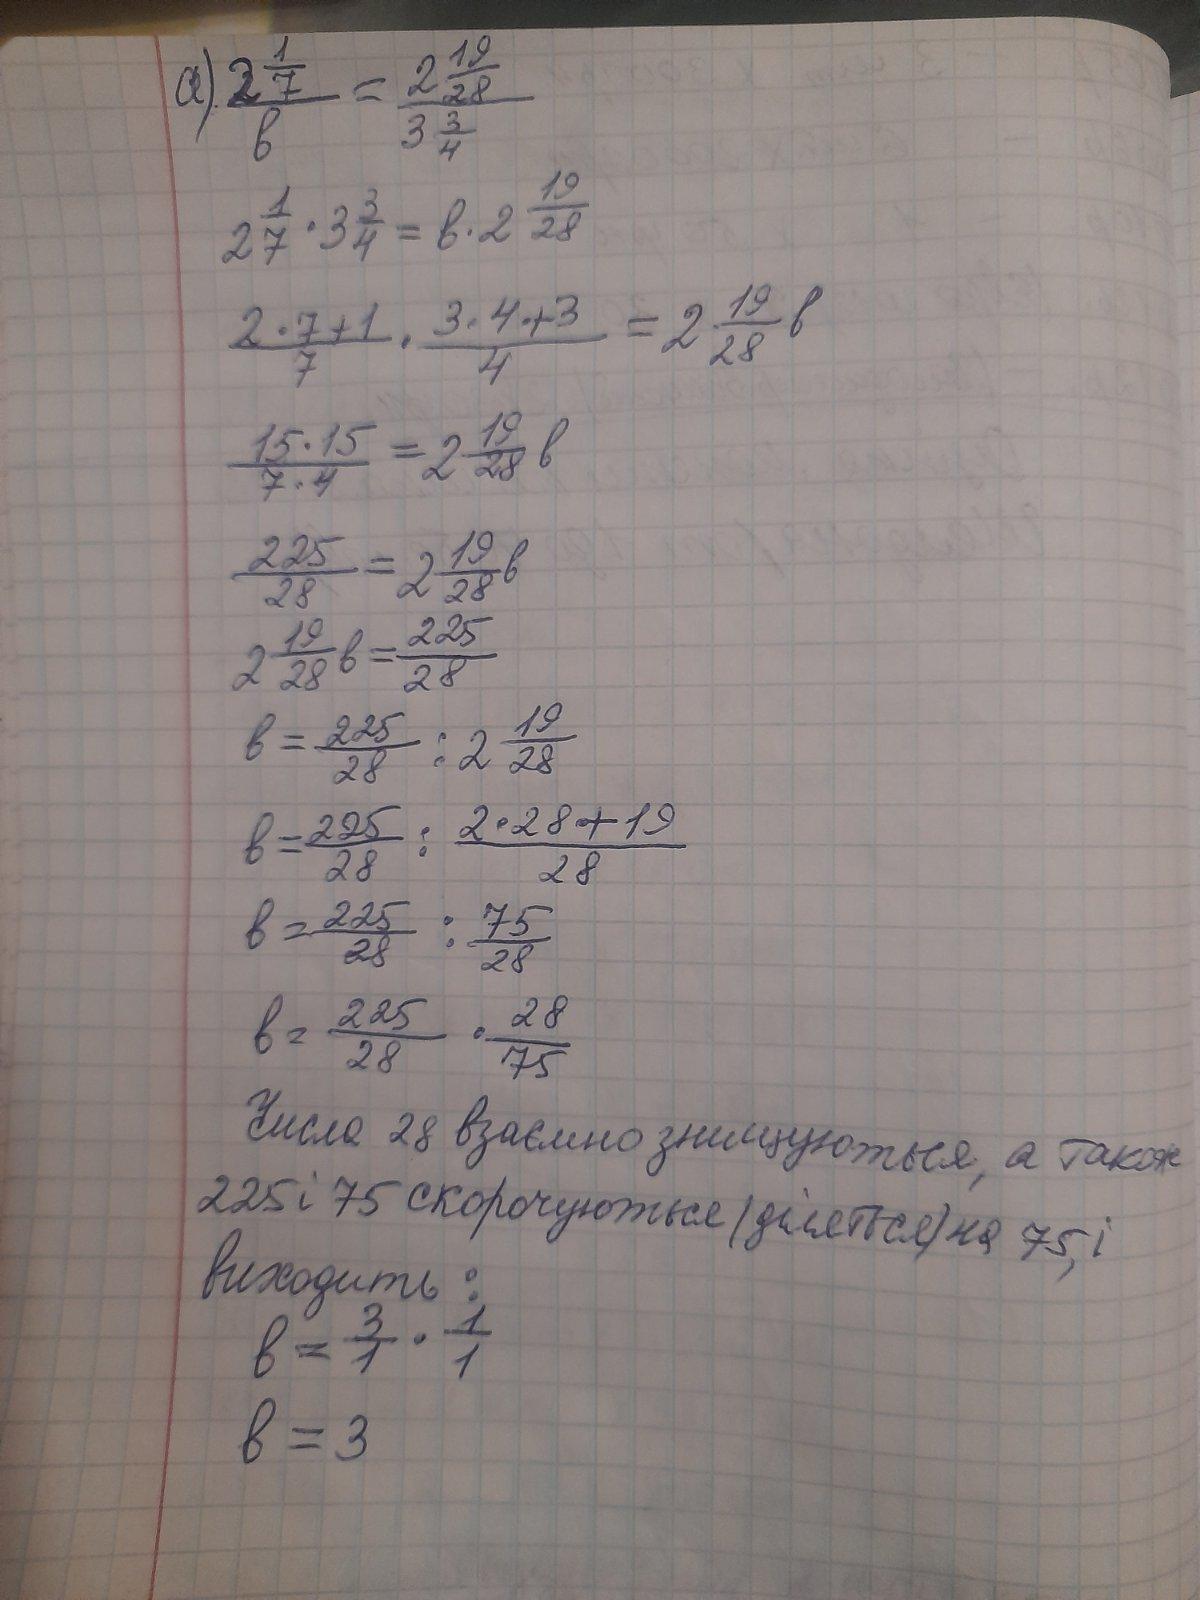 а) 2 1/7 / в = 2 19/28 / 3 3/4
2 1/7 · 3 3/4 = в · 2 19/28
2·7+1 / 7 · 3·4+3 / 4 = 2 19/28 в
15·15 / 7·4 = 2 19/28 в
225/28 = 2 19/28 в
2 19/28 в = 225/28
в = 225/28 : 2 19/28
в = 225/28 : 2·28+19 / 28
в = 225/28 : 75/28
в = 225/28 · 28/75
Числа 28 взаємно знищуються, а також
225 і 75 скорочуються (діляться) на 75, і
виходить:
в = 3/1 · 1/1
в = 3